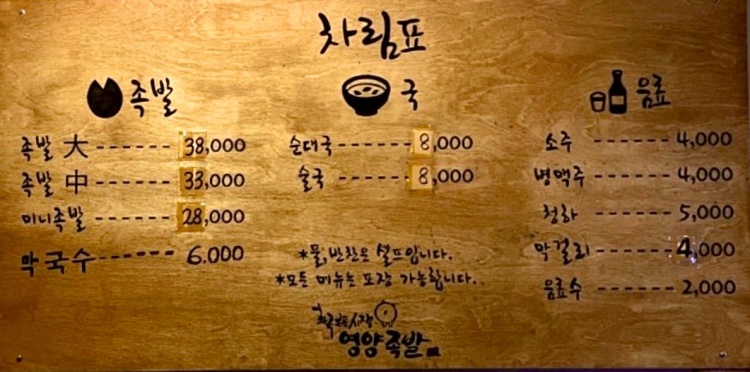 차림표
족발
족발 大 ------- 38,000
족발 中 ------- 33,000
미니족발 ------ 28,000
막국수 ------- 6.000
국
순대국 ------- 8,000
술국 -------- 8,000
*물, 반찬은 셀프입니다.
*모든 메뉴는 포장 가능합니다.
영양족발
음료
소주 ------- 4,000
병맥주 ------- 4,000
청하 ------- 5,000
막걸리 ------- 4,000
음료수 ------- 2,000